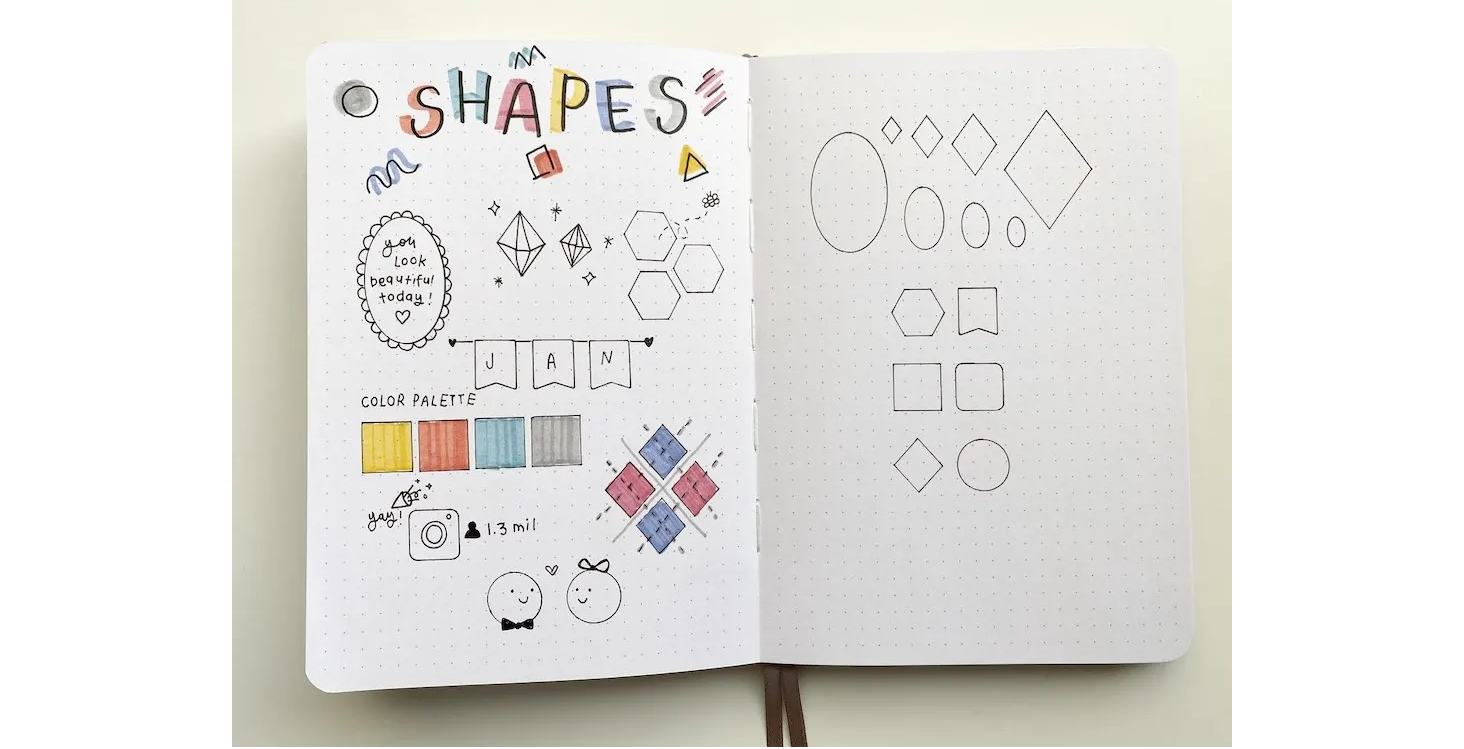 SHAPES
you
look
beautiful
today!
JAN
COLOR PALETTE
yay!
1.3 mil